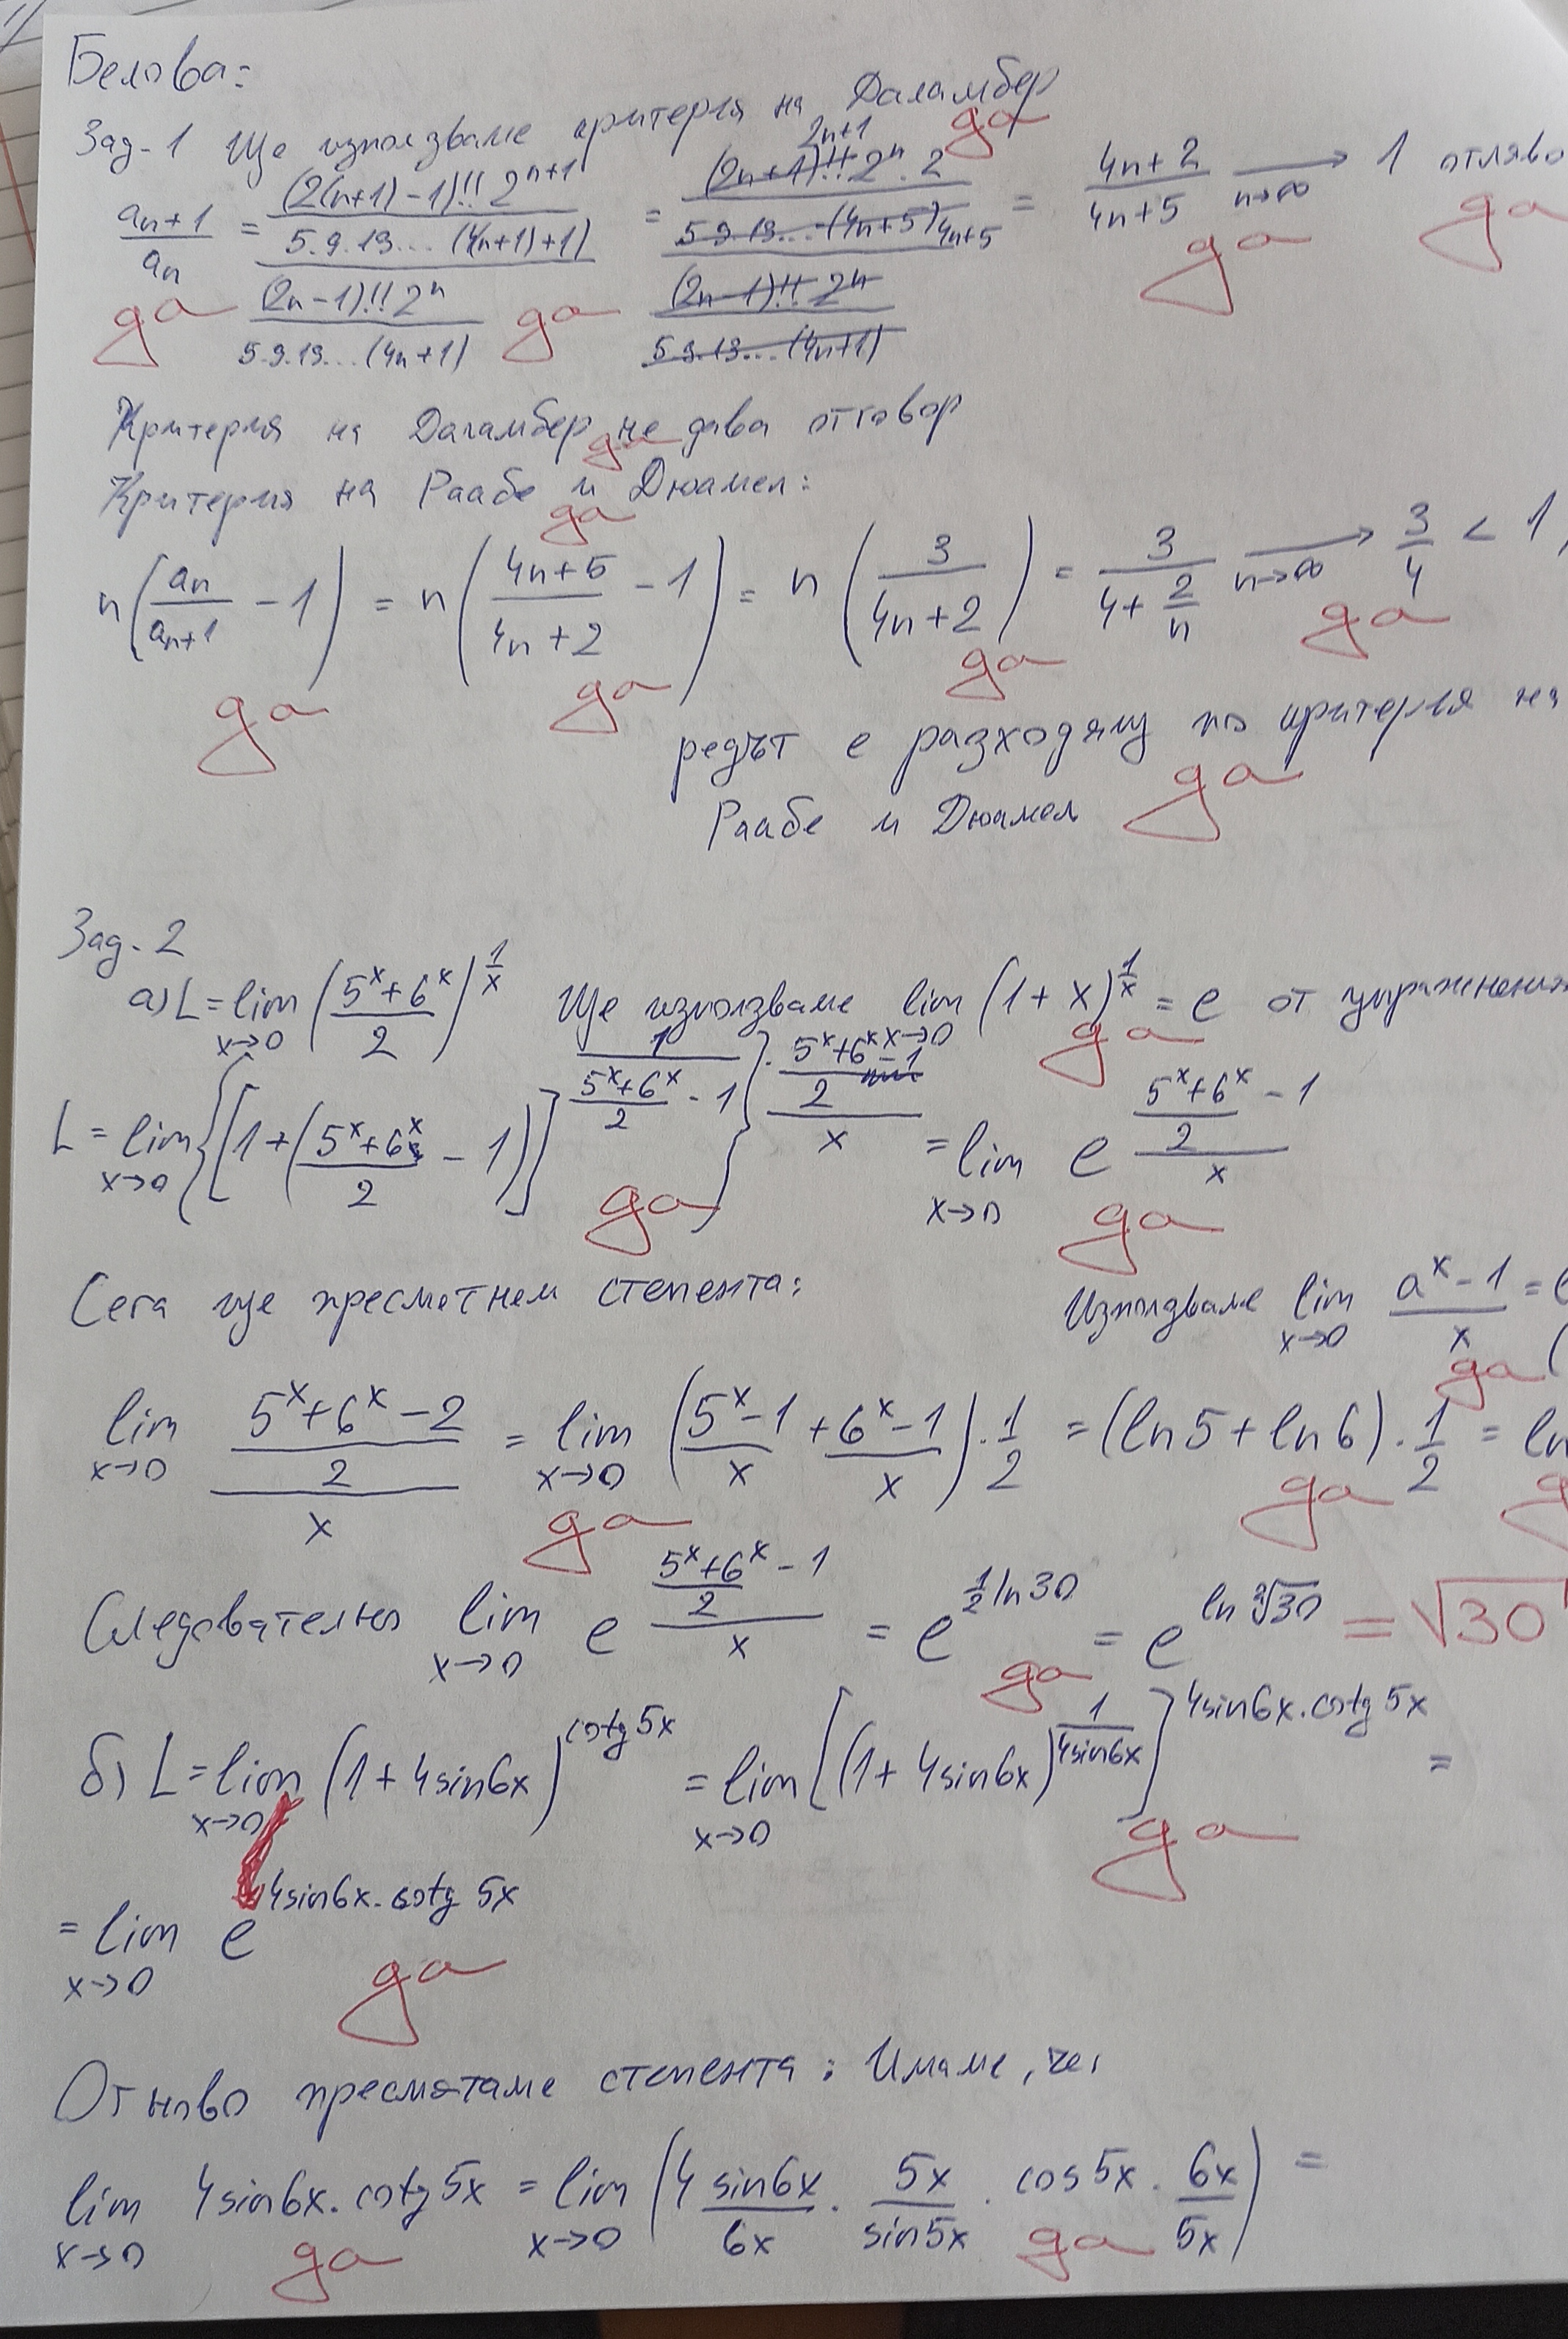 Белова:
Зад. 1 Ще използваме критерия на Даламбер да
a_{n+1}/a_n = ((2(n+1)-1)!! 2^{n+1} / 5.9.13...(4(n+1)+1)) / ((2n-1)!! 2^n / 5.9.13...(4n+1)) = ((2n+1)!! 2^n . 2 / 5.9.13...(4n+5)) / ((2n-1)!! 2^n / 5.9.13...(4n+1)) = (4n+2)/(4n+5) →_{n→∞} 1 отляво
2n+1 4n+5
да да да да
Критерия на Даламбер не дава отговор
да
Критерия на Раабе и Дюамел:
да
n(a_n/a_{n+1} - 1) = n((4n+5)/(4n+2) - 1) = n(3/(4n+2)) = 3/(4+2/n) →_{n→∞} 3/4 < 1,
да да да да
редът е разходящ по критерия на
Раабе и Дюамел да
Зад. 2
а) L = lim_{x→0} ((5^x+6^x)/2)^{1/x} Ще използваме lim_{x→0} (1+x)^{1/x} = e от упражнения
да
L = lim_{x→0} {[1+((5^x+6^x)/2 - 1)]^{1/((5^x+6^x)/2 - 1)}}^{((5^x+6^x)/2 - 1)/x} = lim_{x→0} e^{((5^x+6^x)/2 - 1)/x}
да да
Сега ще пресметнем степента: Използваме lim_{x→0} (a^x-1)/x =
да
lim_{x→0} ((5^x+6^x-2)/2)/x = lim_{x→0} ((5^x-1)/x + (6^x-1)/x) . 1/2 = (ln5 + ln6) . 1/2 = ln
да да
Следователно lim_{x→0} e^{((5^x+6^x)/2 - 1)/x} = e^{1/2 ln30} = e^{ln ²√30} = √30
да
б) L = lim_{x→0} (1+4sin6x)^{cotg5x} = lim_{x→0} [(1+4sin6x)^{1/(4sin6x)}]^{4sin6x.cotg5x} =
да
= lim_{x→0} e^{4sin6x.cotg5x}
да
Отново пресмятаме степента: Имаме, че:
lim_{x→0} 4sin6x.cotg5x = lim_{x→0} (4 sin6x/6x . 5x/sin5x . cos5x . 6x/5x) =
да да